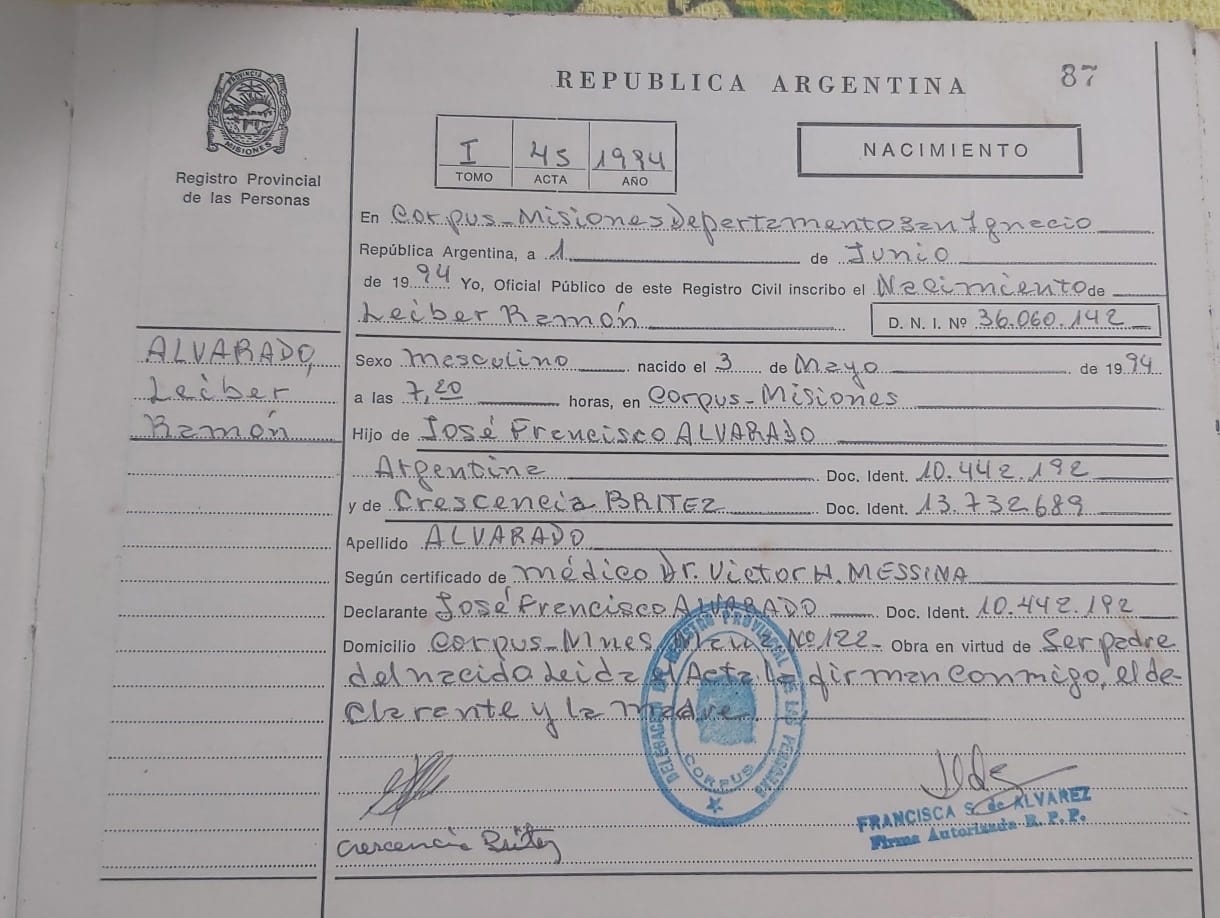 REPUBLICA ARGENTINA
87
PROVINCIA DE
MISIONES
Registro Provincial
de las Personas
I 45 1994
TOMO ACTA AÑO
NACIMIENTO
En Corpus-Misiones Departamento San Ignacio
República Argentina, a 1 de Junio
de 1994 Yo, Oficial Público de este Registro Civil inscribo el Nacimiento de
Leiber Ramón D. N. I. Nº 36.060.142
ALVARADO,
Leiber
Ramón
Sexo Masculino nacido el 3 de Mayo de 1994
a las 7,20 horas, en Corpus-Misiones
Hijo de José Francisco ALVARADO
Argentina Doc. Ident. 10.442.192
y de Crescencia BRITEZ Doc. Ident. 13.732.689
Apellido ALVARADO
Según certificado de médico Dr. Victor H. MESSINA
Declarante José Francisco ALVARADO Doc. Ident. 10.442.192
Domicilio Corpus-Mnes Nº 122- Obra en virtud de Ser padre
del nacido Leida el Acta la firman conmigo, el de-
clarante y la madre.
DELEGACION DEL REGISTRO PROVINCIAL DE LAS PERSONAS
CORPUS
FRANCISCA S. de ALVAREZ
Firma Autorizada R. P. P.
Crescencia Britez